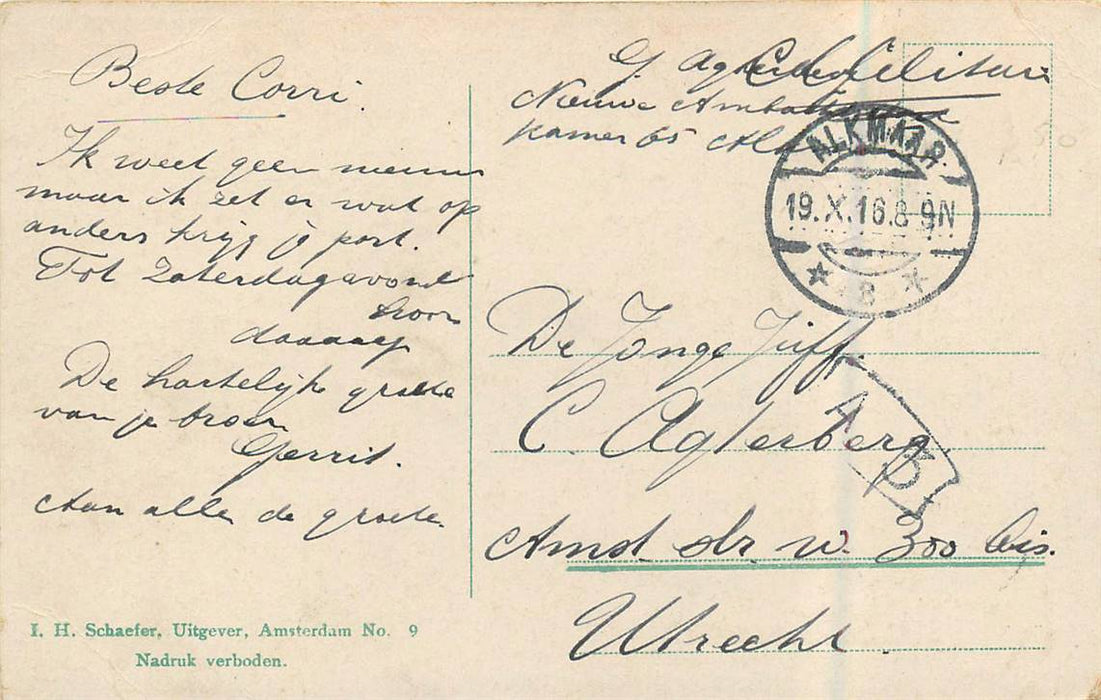 Beste Corri.
Ik weet geen nieuws
maar ik zet er wat op
anders krijg je post.
Tot Zaterdagavond
hoor
daaaag
De hartelijke groete
van je broer
Gerrit.
Aan alle de groete.
I. H. Schaefer, Uitgever, Amsterdam No. 9
Nadruk verboden.
G. Agterberg
Nieuwe
Kamer 65
ALKMAAR.
19.X.16.8-9N
8
De Jonge Juff.
C. Agterberg
A
B
Amst. str. w. 300 bis.
Utrecht.
50